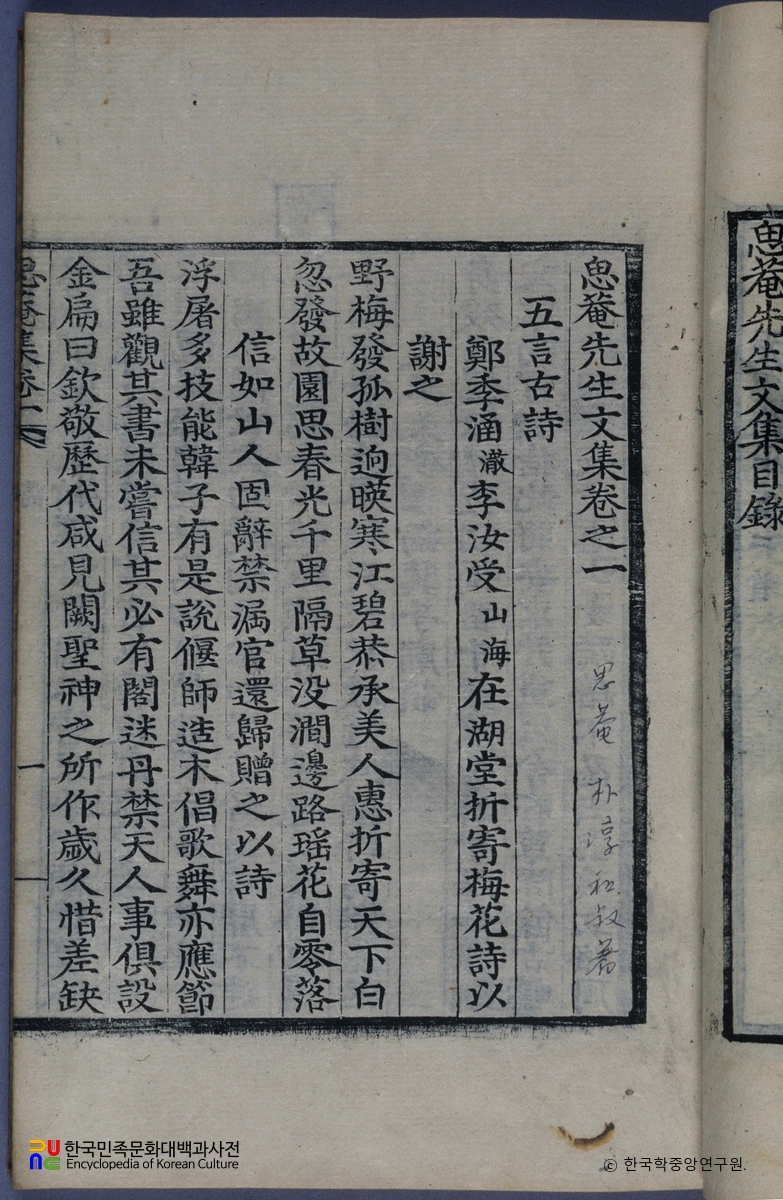 思菴先生文集目錄
思菴先生文集卷之一
思菴 朴淳 和叔 著
五言古詩
鄭季涵澈李汝受山海在湖堂折寄梅花詩以
謝之
野梅發孤樹逈暎寒江碧恭承美人惠折寄天下白
忽發故園思春光千里隔草没澗邊路瑶花自零落
信如山人固辭禁漏官還歸贈之以詩
浮屠多技能韓子有是說偃師造木倡歌舞亦應節
吾雖觀其書未嘗信其必有閣迷丹禁天人事俱設
金扁曰欽敬歷代咸見闕聖神之所作歲久惜差缺
思菴集卷一
一
한국민족문화대백과사전
Encyclopedia of Korean Culture
ⓒ 한국학중앙연구원.